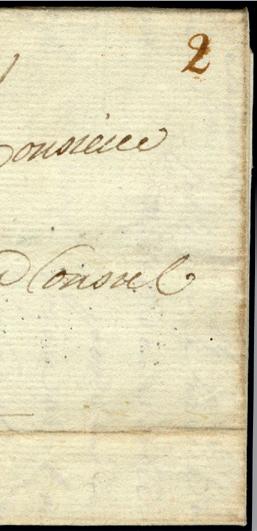 2
onsieur
Consiel